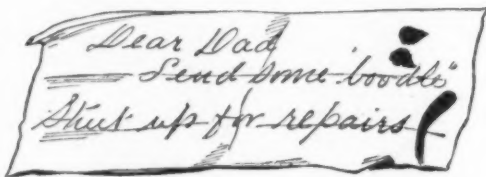 Dear Dad
Send some "boodle"
Shut up for repairs